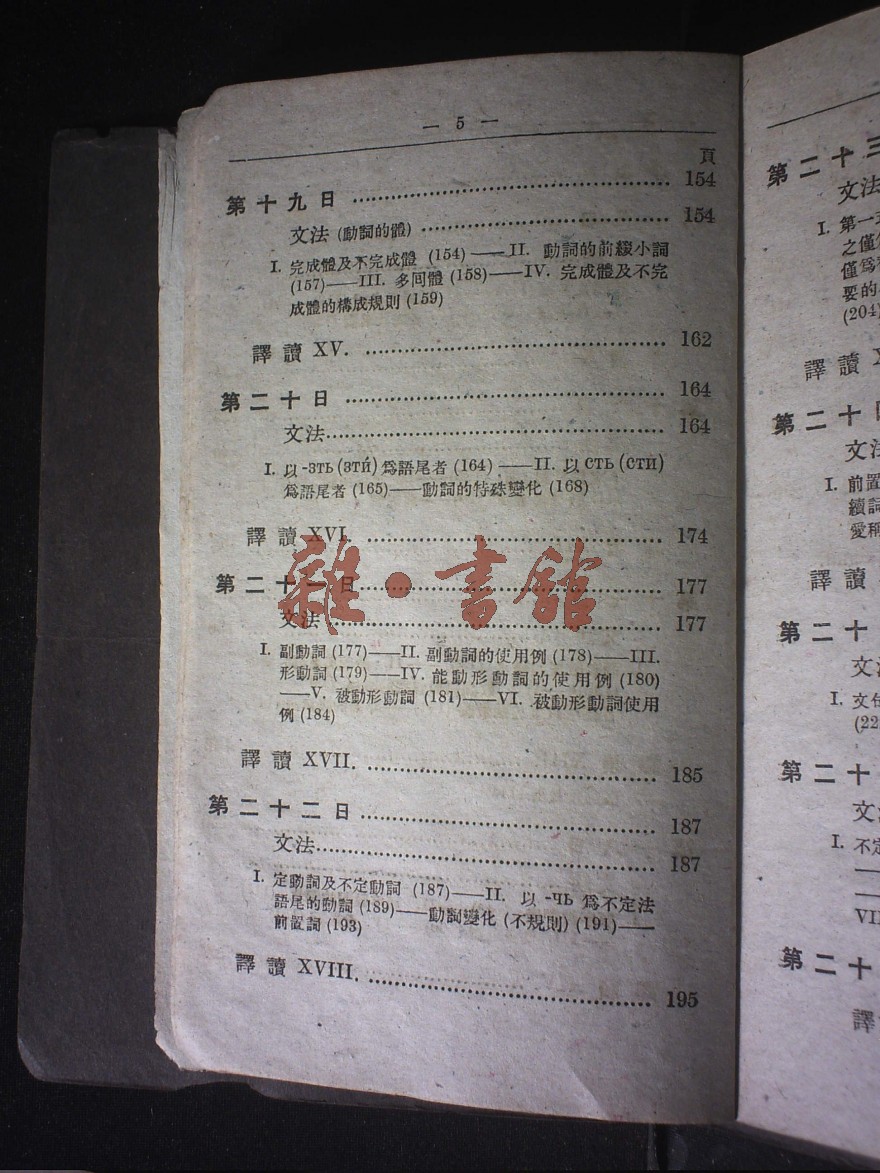 — 5 —
頁
第十九日 …… 154
文法 (動詞的體) …… 154
I. 完成體及不完成體 (154) ——II. 動詞的前綴小詞
(157)——III. 多回體 (158)——IV. 完成體及不完
成體的構成規則 (159)
譯讀 XV. …… 162
第二十日 …… 164
文法 …… 164
I. 以 -зть (зти́) 爲語尾者 (164) ——II. 以 сть (сти́)
爲語尾者 (165)——動詞的特殊變化 (168)
譯讀 XVI. …… 174
第二十一日 …… 177
文法 …… 177
I. 副動詞 (177)——II. 副動詞的使用例 (178)——III.
形動詞 (179)——IV. 能動形動詞的使用例 (180)
——V. 被動形動詞 (181)——VI. 被動形動詞使用
例 (184)
譯讀 XVII. …… 185
第二十二日 …… 187
文法 …… 187
I. 定動詞及不定動詞 (187)——II. 以 -чь 爲不定法
語尾的動詞 (189)——動詞變化 (不規則) (191)——
前置詞 (193)
譯讀 XVIII. …… 195
雜·書館
第二十三
文法
I. 第一
之僅
僅爲
要的
(204)
譯讀
第二十
文法
I. 前置
續詞
愛稱
譯讀
第二十
文法
I. 文句
(22
第二十
文法
I. 不定
——
——
VII
第二十
譯